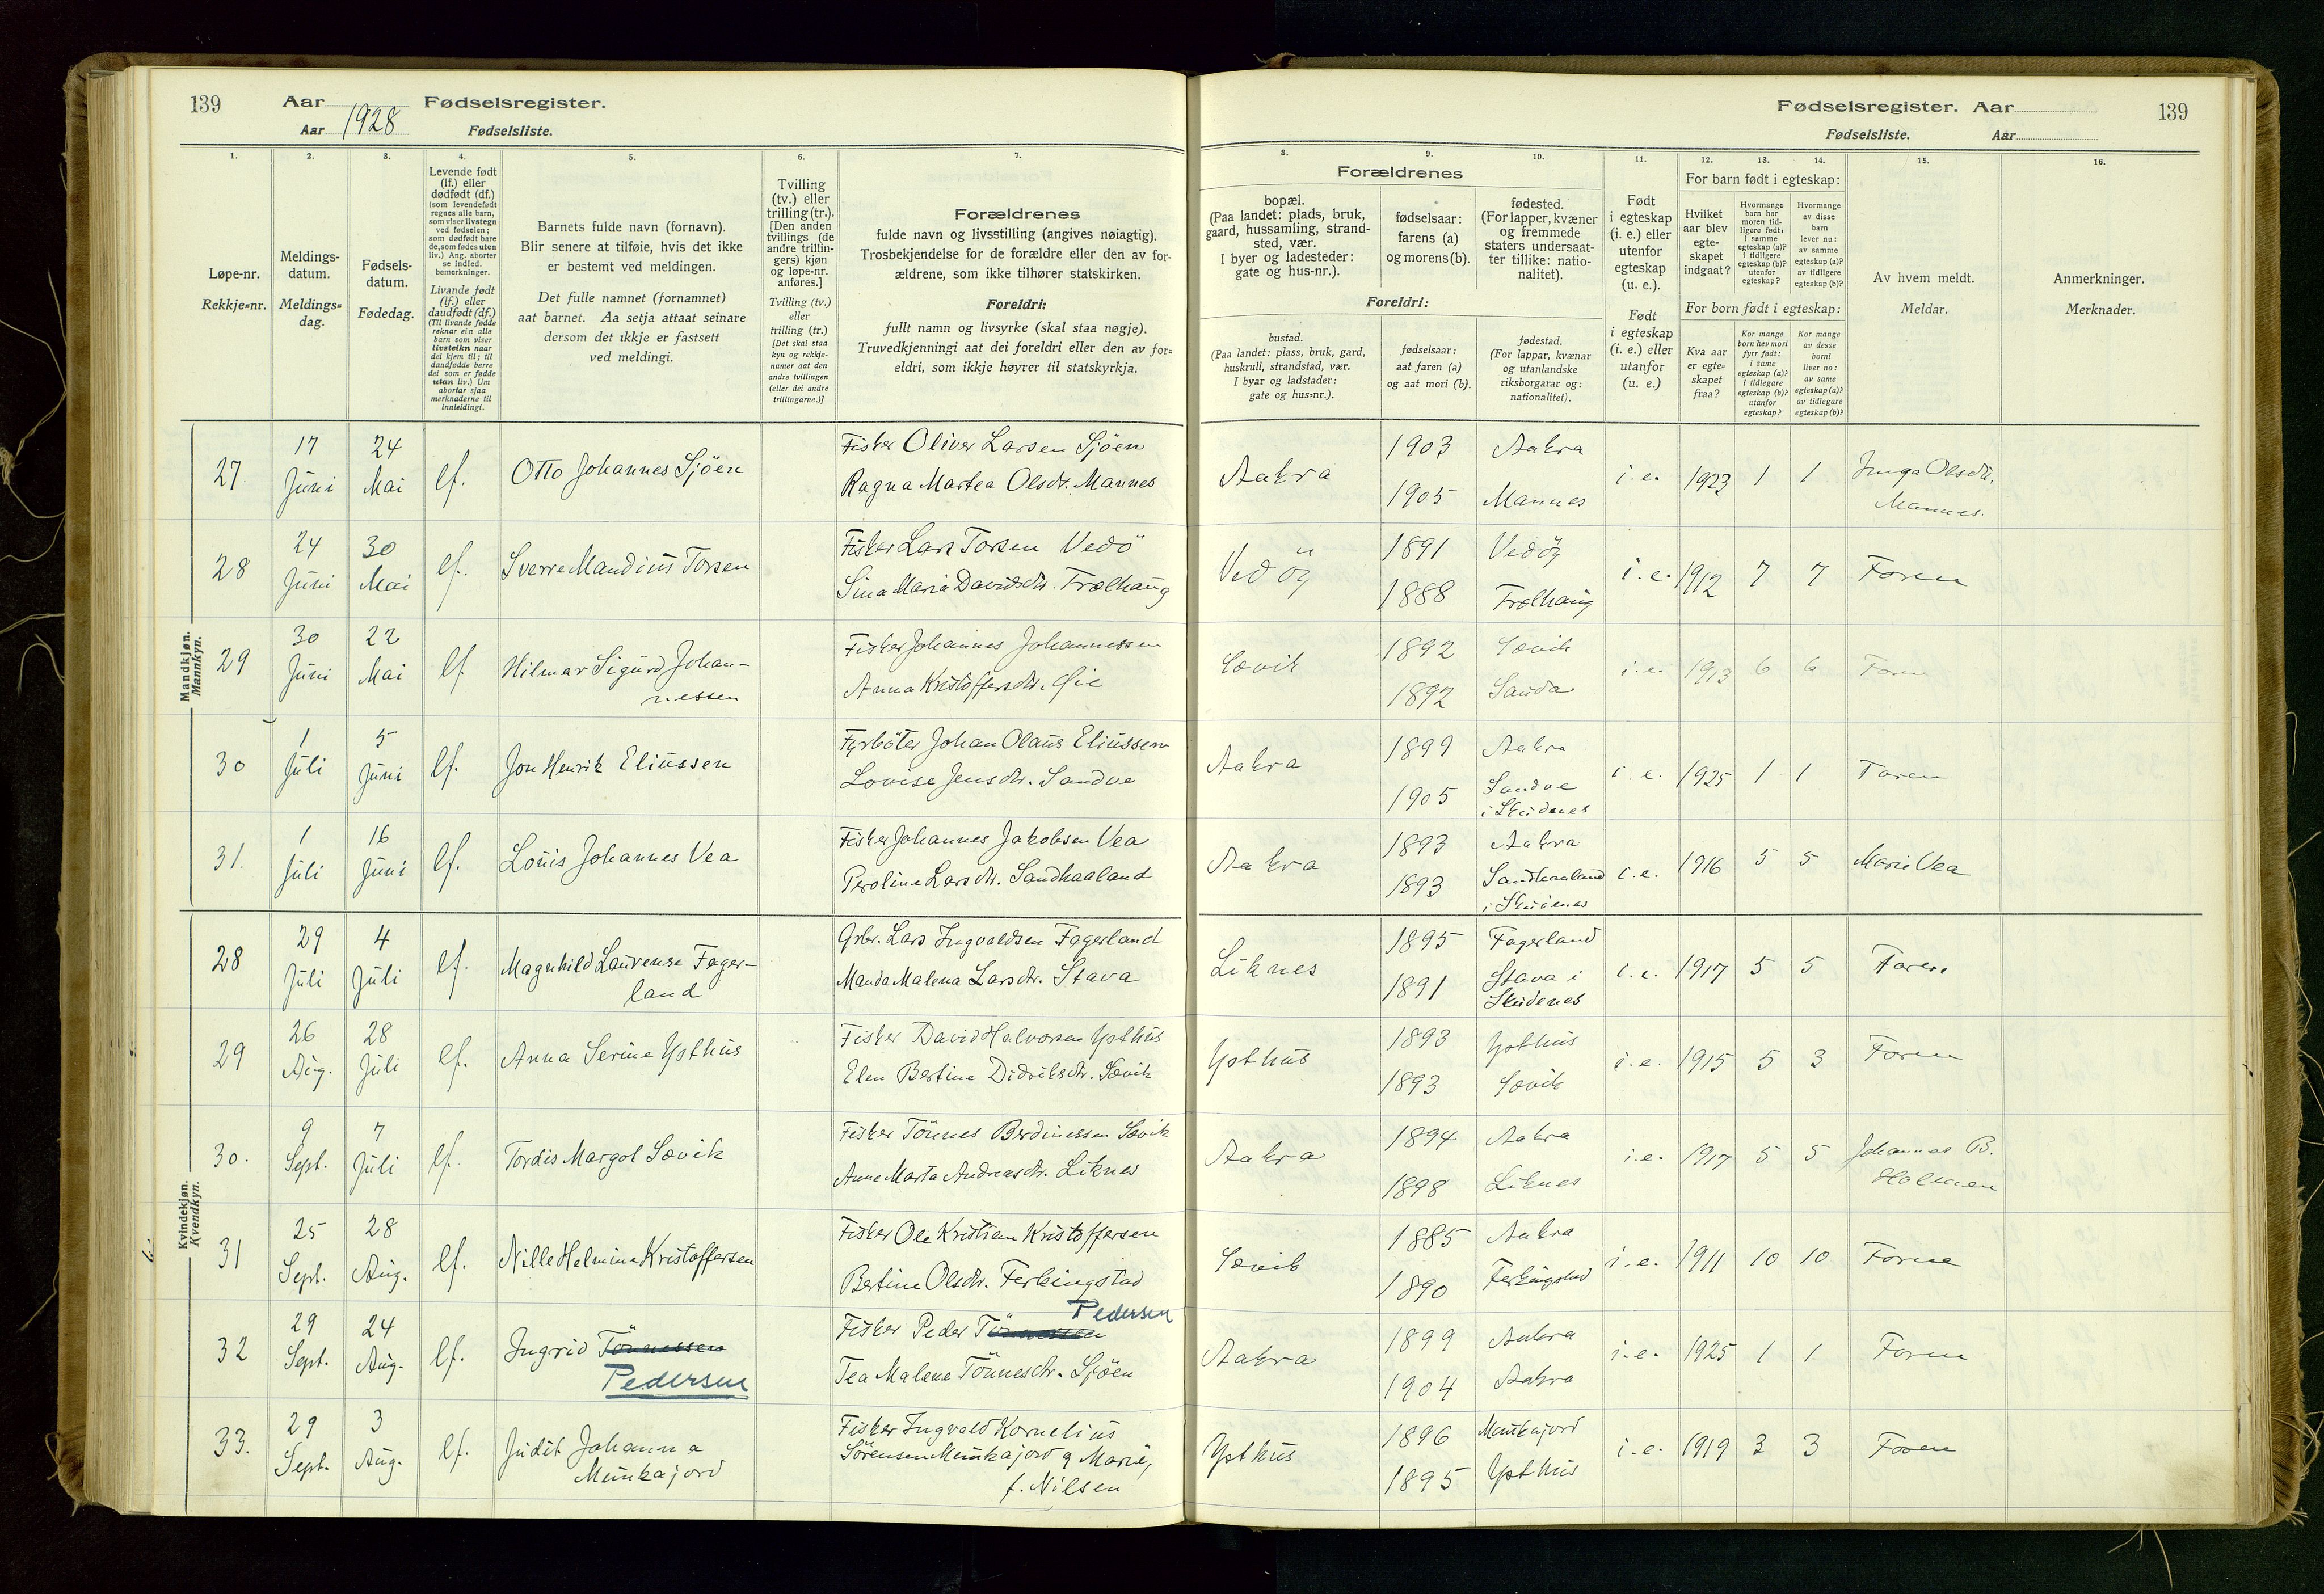 139 Aar Fødselsregister.
Aar 1928 Fødselsliste.
Fødselsregister. Aar 139
Fødselsliste. Aar
1. 2. 3. 4. 5. 6. 7. 8. 9. 10. 11. 12. 13. 14. 15. 16.
Løpe-nr.
Rekkje=nr.
Meldings-
datum.
Meldings=
dag.
Fødsels-
datum.
Fødedag.
Levende født
(lf.) eller
dødfødt (df.)
(som levendefødt
regnes alle barn,
som viser livstegn
ved fødselen;
som dødfødt bare
de, som fødes uten
liv.) Ang. aborter
se indled.
bemerkninger.
Livande født
(lf.) eller
daudfødt (df.)
(Til livande fødde
reknar ein alle
barn som viser
livsteikn naar
dei kjem til; til
daudfødde berre
dei som er fødde
utan liv.) Um
abortar sjaa
merknaderne til
innleidingi.
Barnets fulde navn (fornavn).
Blir senere at tilføie, hvis det ikke
er bestemt ved meldingen.
Det fulle namnet (fornamnet)
aat barnet. Aa setja attaat seinare
dersom det ikkje er fastsett
ved meldingi.
Tvilling
(tv.) eller
trilling (tr.).
[Den anden
tvillings (de
andre trillin-
gers) kjøn
og løpe-nr.
anføres.]
Tvilling (tv.)
eller
trilling (tr.)
[Det skal staa
kyn og rekkje-
numer aat den
andre tvillingen
(eller dei andre
trillingarne.)]
Forældrenes
fulde navn og livsstilling (angives nøiagtig).
Trosbekjendelse for de forældre eller den av for-
ældrene, som ikke tilhører statskirken.
Foreldri:
fullt namn og livsyrke (skal staa nøgje).
Truvedkjenningi aat dei foreldri eller den av for=
eldri, som ikkje høyrer til statskyrkja.
Forældrenes
bopæl.
(Paa landet: plads, bruk,
gaard, hussamling, strand-
sted, vær.
I byer og ladesteder:
gate og hus-nr.).
fødselsaar:
farens (a)
og morens (b).
fødested.
(For lapper, kvæner
og fremmede
staters undersaat-
ter tillike: natio-
nalitet).
Foreldri:
bustad.
(Paa landet: plass, bruk, gard,
huskrull, strandstad, vær.
I byar og ladstader:
gate og hus=nr.).
fødselsaar:
aat faren (a)
og aat mori (b).
fødestad.
(For lappar, kvænar
og utanlandske
riksborgarar og:
nationalitet).
Født
i egteskap
(i. e.) eller
utenfor
egteskap
(u. e.).
Født
i egteskap
(i. e.) eller
utanfor
(u. e.)
For barn født i egteskap:
Hvilket
aar blev
egte-
skapet
indgaat?
Hvormange
barn har
moren tid-
ligere født:
i samme
egteskap (a)?
i tidligere
egteskap (b)?
utenfor
egteskap?
Hvormange
av disse
barn
lever nu:
av samme
egteskap (a)?
av tidligere
egteskap (b)?
For born født i egteskap:
Kva aar
er egte=
skapet
fraa?
Kor mange
born hev mori
fyrr født:
i same
egteskap (a)?
i tidlegare
egteskap (b)?
utanfor
egteskap?
Kor mange
av desse
borni
liver no:
av same
egteskap (a)?
av tidlegare
egteskap (b)?
Av hvem meldt.
Meldar.
Anmerkninger.
Merknader.
Mandkjøn.
Mannkyn.
27. 17 Juni 24 Mai lf. Otto Johannes Sjöen
Fisker Oliver Larsen Sjöen
Ragna Martea Olsdtr. Mannes
Aakra 1903 Aakra
1905 Mannes
i. e. 1923 1 1 Inga Olsdtr.
Mannes.
28 24 Juni 30 Mai lf. Sverre Mandius Torsen
Fisker Lars Torsen Vedö
Sina Maria Davidsdtr. Trælhaug
Vedöy 1891 Vedöy
1888 Trælhaug
i. e. 1912 7 7 Faren
29 30 Juni 22 Mai lf. Hilmar Sigurd Johan-
nessen
Fisker Johannes Johannessen
Anna Kristoffersdtr. Öie
Sævik 1892 Sævik
1892 Sauda
i. e. 1913 6 6 Faren
30 1 Juli 5 Juni lf. Jon Henrik Eliussen
Fyrböter Johan Olaus Eliussen
Lovise Jensdtr. Sandve
Aakra 1899 Aakra
1905 Sandve
i Skudenes
i. e. 1925 1 1 Faren
31. 1 Juli 16 Juni lf. Louis Johannes Vea
Fisker Johannes Jakobsen Vea
Peroline Larsdtr. Sandhaaland
Aakra 1893 Aakra
1893 Sandhaaland
i Skudenes
i. e. 1916 5 5 Marie Vea
Kvindekjøn.
Kvendkyn.
28 29 Juli 4 Juli lf. Magnhild Laurense Fager-
land
Grbr. Lars Ingvaldsen Fagerland
Manda Malena Larsdtr. Stava
Liknes 1895 Fagerland
1891 Stava i
Skudenes
i. e. 1917 5 5 Faren
29 26 Aug. 28 Juli lf. Anna Serine Ysthus
Fisker David Halvorsen Ysthus
Elen Bertine Didriksdtr. Sævik
Ysthus 1893 Ysthus
1893 Sævik
i. e. 1915 5 3 Faren
30. 9 Sept. 7 Juli lf. Tordis Margot Sævik
Fisker Tönnes Berdinessen Sævik
Anne Marta Andreasdtr. Liknes
Aakra 1894 Aakra
1898 Liknes
i. e. 1917 5 5 Johannes B.
Holmen
31 25 Sept. 28 Aug. lf. Nille Helmine Kristoffersen
Fisker Ole Kristian Kristoffersen
Bertine Olsdtr. Ferkingstad
Sævik 1885 Aakra
1890 Ferkingstad
i. e. 1911 10 10 Faren
32 29 Sept. 24 Aug. lf. Ingrid Tönnessen
Pedersen
Pedersen
Fisker Peder Tönnessen
Tea Malene Tönnesdtr. Sjöen
Aakra 1899 Aakra
1904 Aakra
i. e. 1925 1 1 Faren
33. 29 Sept. 3 Aug. lf. Judit Johanna
Munkajord
Fisker Ingvald Kornelius
Sörensen Munkajord og Marie,
f. Nilsen
Ysthus 1896 Munkajord
1895 Ysthus
i. e. 1919 3 3 Faren